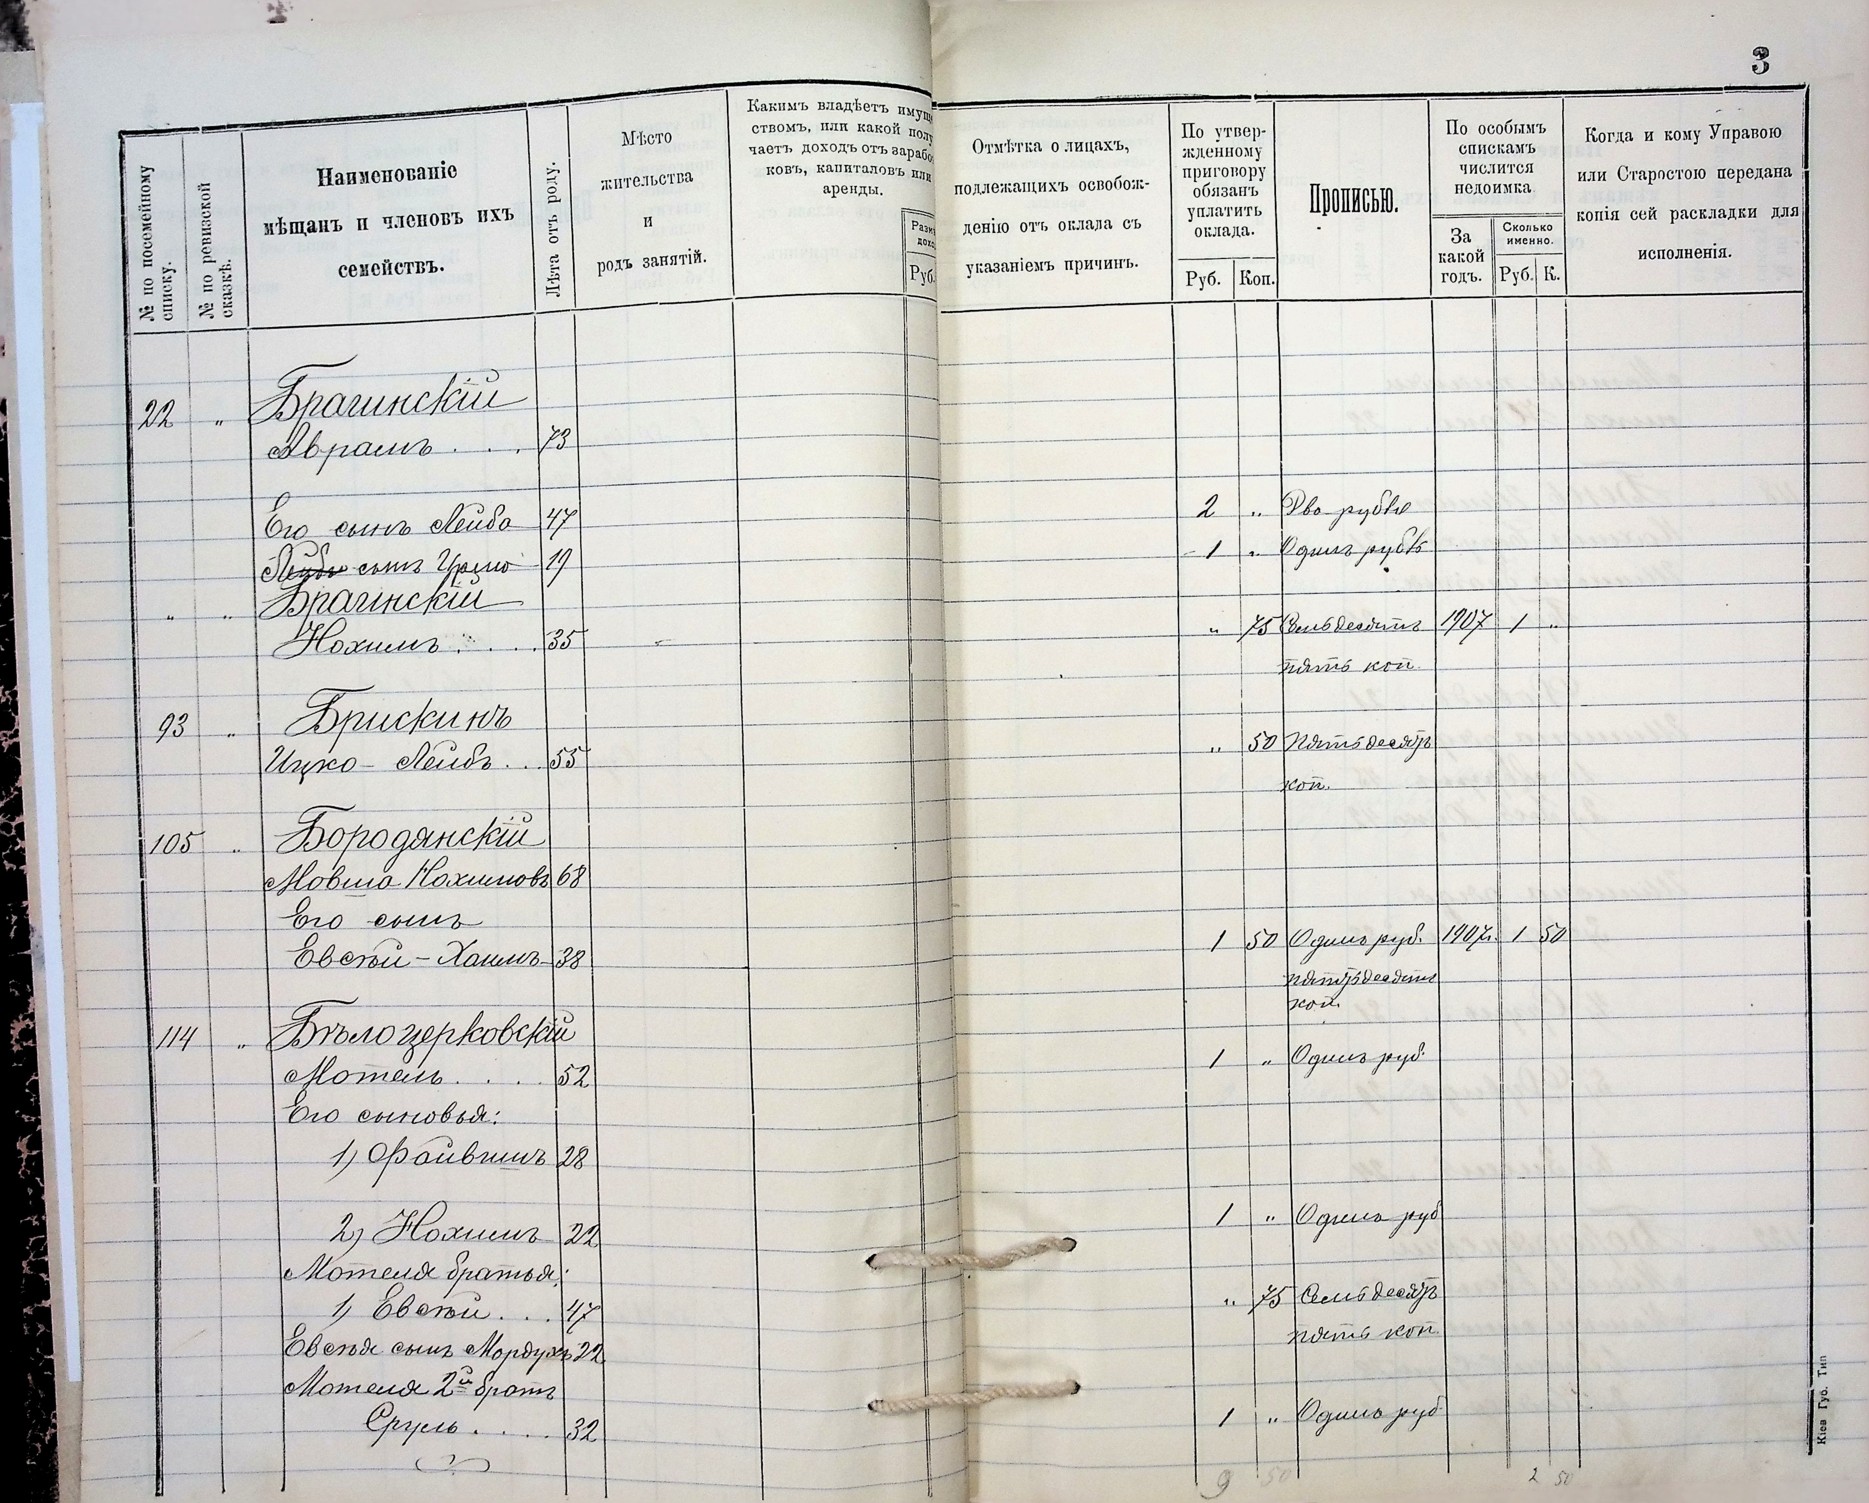 3
№ по посемейному списку.
№ по ревизской сказкѣ.
Наименованіе
мѣщанъ и членовъ ихъ
семействъ.
Лѣта отъ роду.
Мѣсто
жительства
и
родъ занятій.
Какимъ владѣетъ имуще
ствомъ, или какой полу
чаетъ доходъ отъ зарабо
ковъ, капиталовъ или
аренды.
Разм
дохо
Руб.
Отмѣтка о лицахъ,
подлежащихъ освобож-
денію отъ оклада съ
указаніемъ причинъ.
По утвер-
жденному
приговору
обязанъ
уплатить
оклада.
Руб. Коп.
Прописью.
По особымъ
спискамъ
числится
недоимка.
За
какой
годъ.
Сколько
именно.
Руб. К.
Когда и кому Управою
или Старостою передана
копія сей раскладки для
исполненія.
22 " Брагинскій
Аврамъ . . . 73
Его сынъ Лейба 47 2 " Два рубля
сынъ 19 1 " Одинъ рубль
" " Брагинскій
Нохимъ . . . . 35 " 75 Семьдесятъ 1907 1 "
пять коп.
93 " Брискинъ
Ицко-Лейбъ . . 55 " 50 Пятьдесятъ
коп.
105 " Бородянскій
Мовша Нохимовъ 68
Его сынъ
Евсѣй-Хаимъ 38 1 50 Одинъ руб. 1907г. 1 50
пятьдесятъ
коп.
114 " Бѣлоцерковскій
Мотель . . . . 52 1 " Одинъ руб.
Его сыновья:
1) Файвишъ 28
2) Нохимъ 22 1 " Одинъ руб
Мотеля братья:
1) Евсѣй . . . 47 " 75 Семьдесятъ
пять коп.
Евсѣя сынъ Мордухъ 22
Мотеля 2й братъ
Сруль . . . . 32 1 " Одинъ руб
9 50 2 50
Кіев Губ. Тип